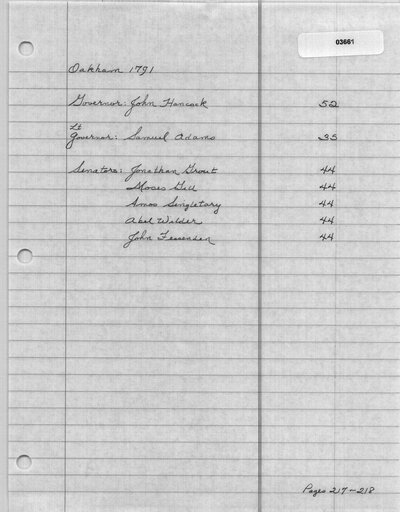 03661
Oakham 1791
Governor: John Hancock 52
Lt
Governor: Samuel Adams 35
Senators: Jonathan Grout 44
Moses Gill 44
Amos Singletary 44
Abel Wilder 44
John Fessenden 44
Pages 217-218